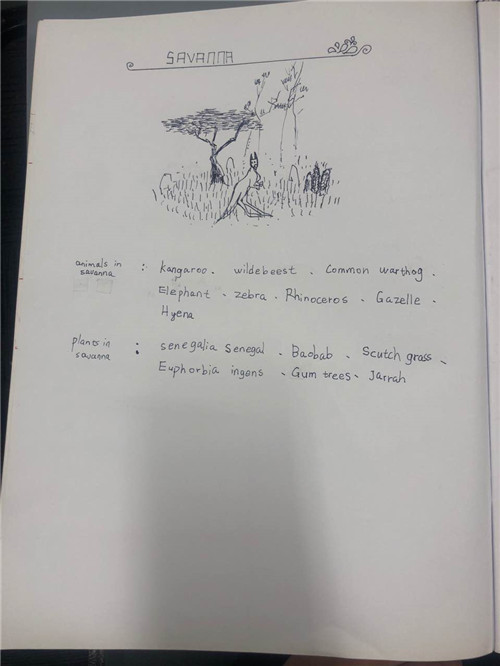 SAVANNA
animals in
savanna : kangaroo. wildebeest. Common warthog.
Elephant. zebra. Rhinoceros. Gazelle.
Hyena
plants in
savanna : senegalia Senegal. Baobab. Scutch grass.
Euphorbia ingens. Gum trees. Jarrah